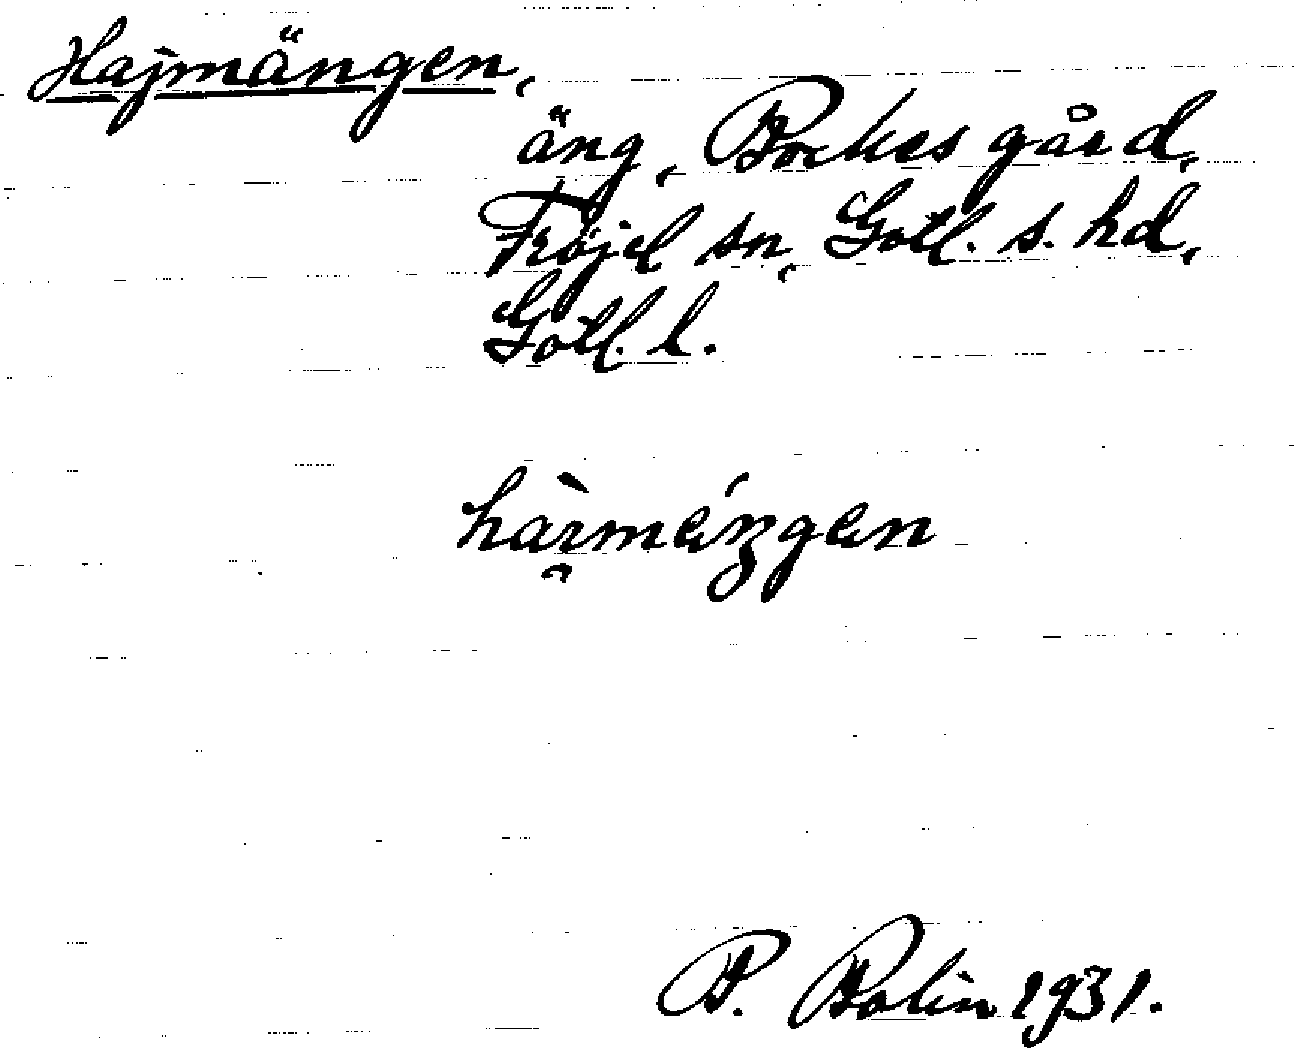 Hajmängen,
äng, Bockes gård,
Fröjel sn, Gotl. s. hd,
Gotl. l.
P. Bolin 1931.